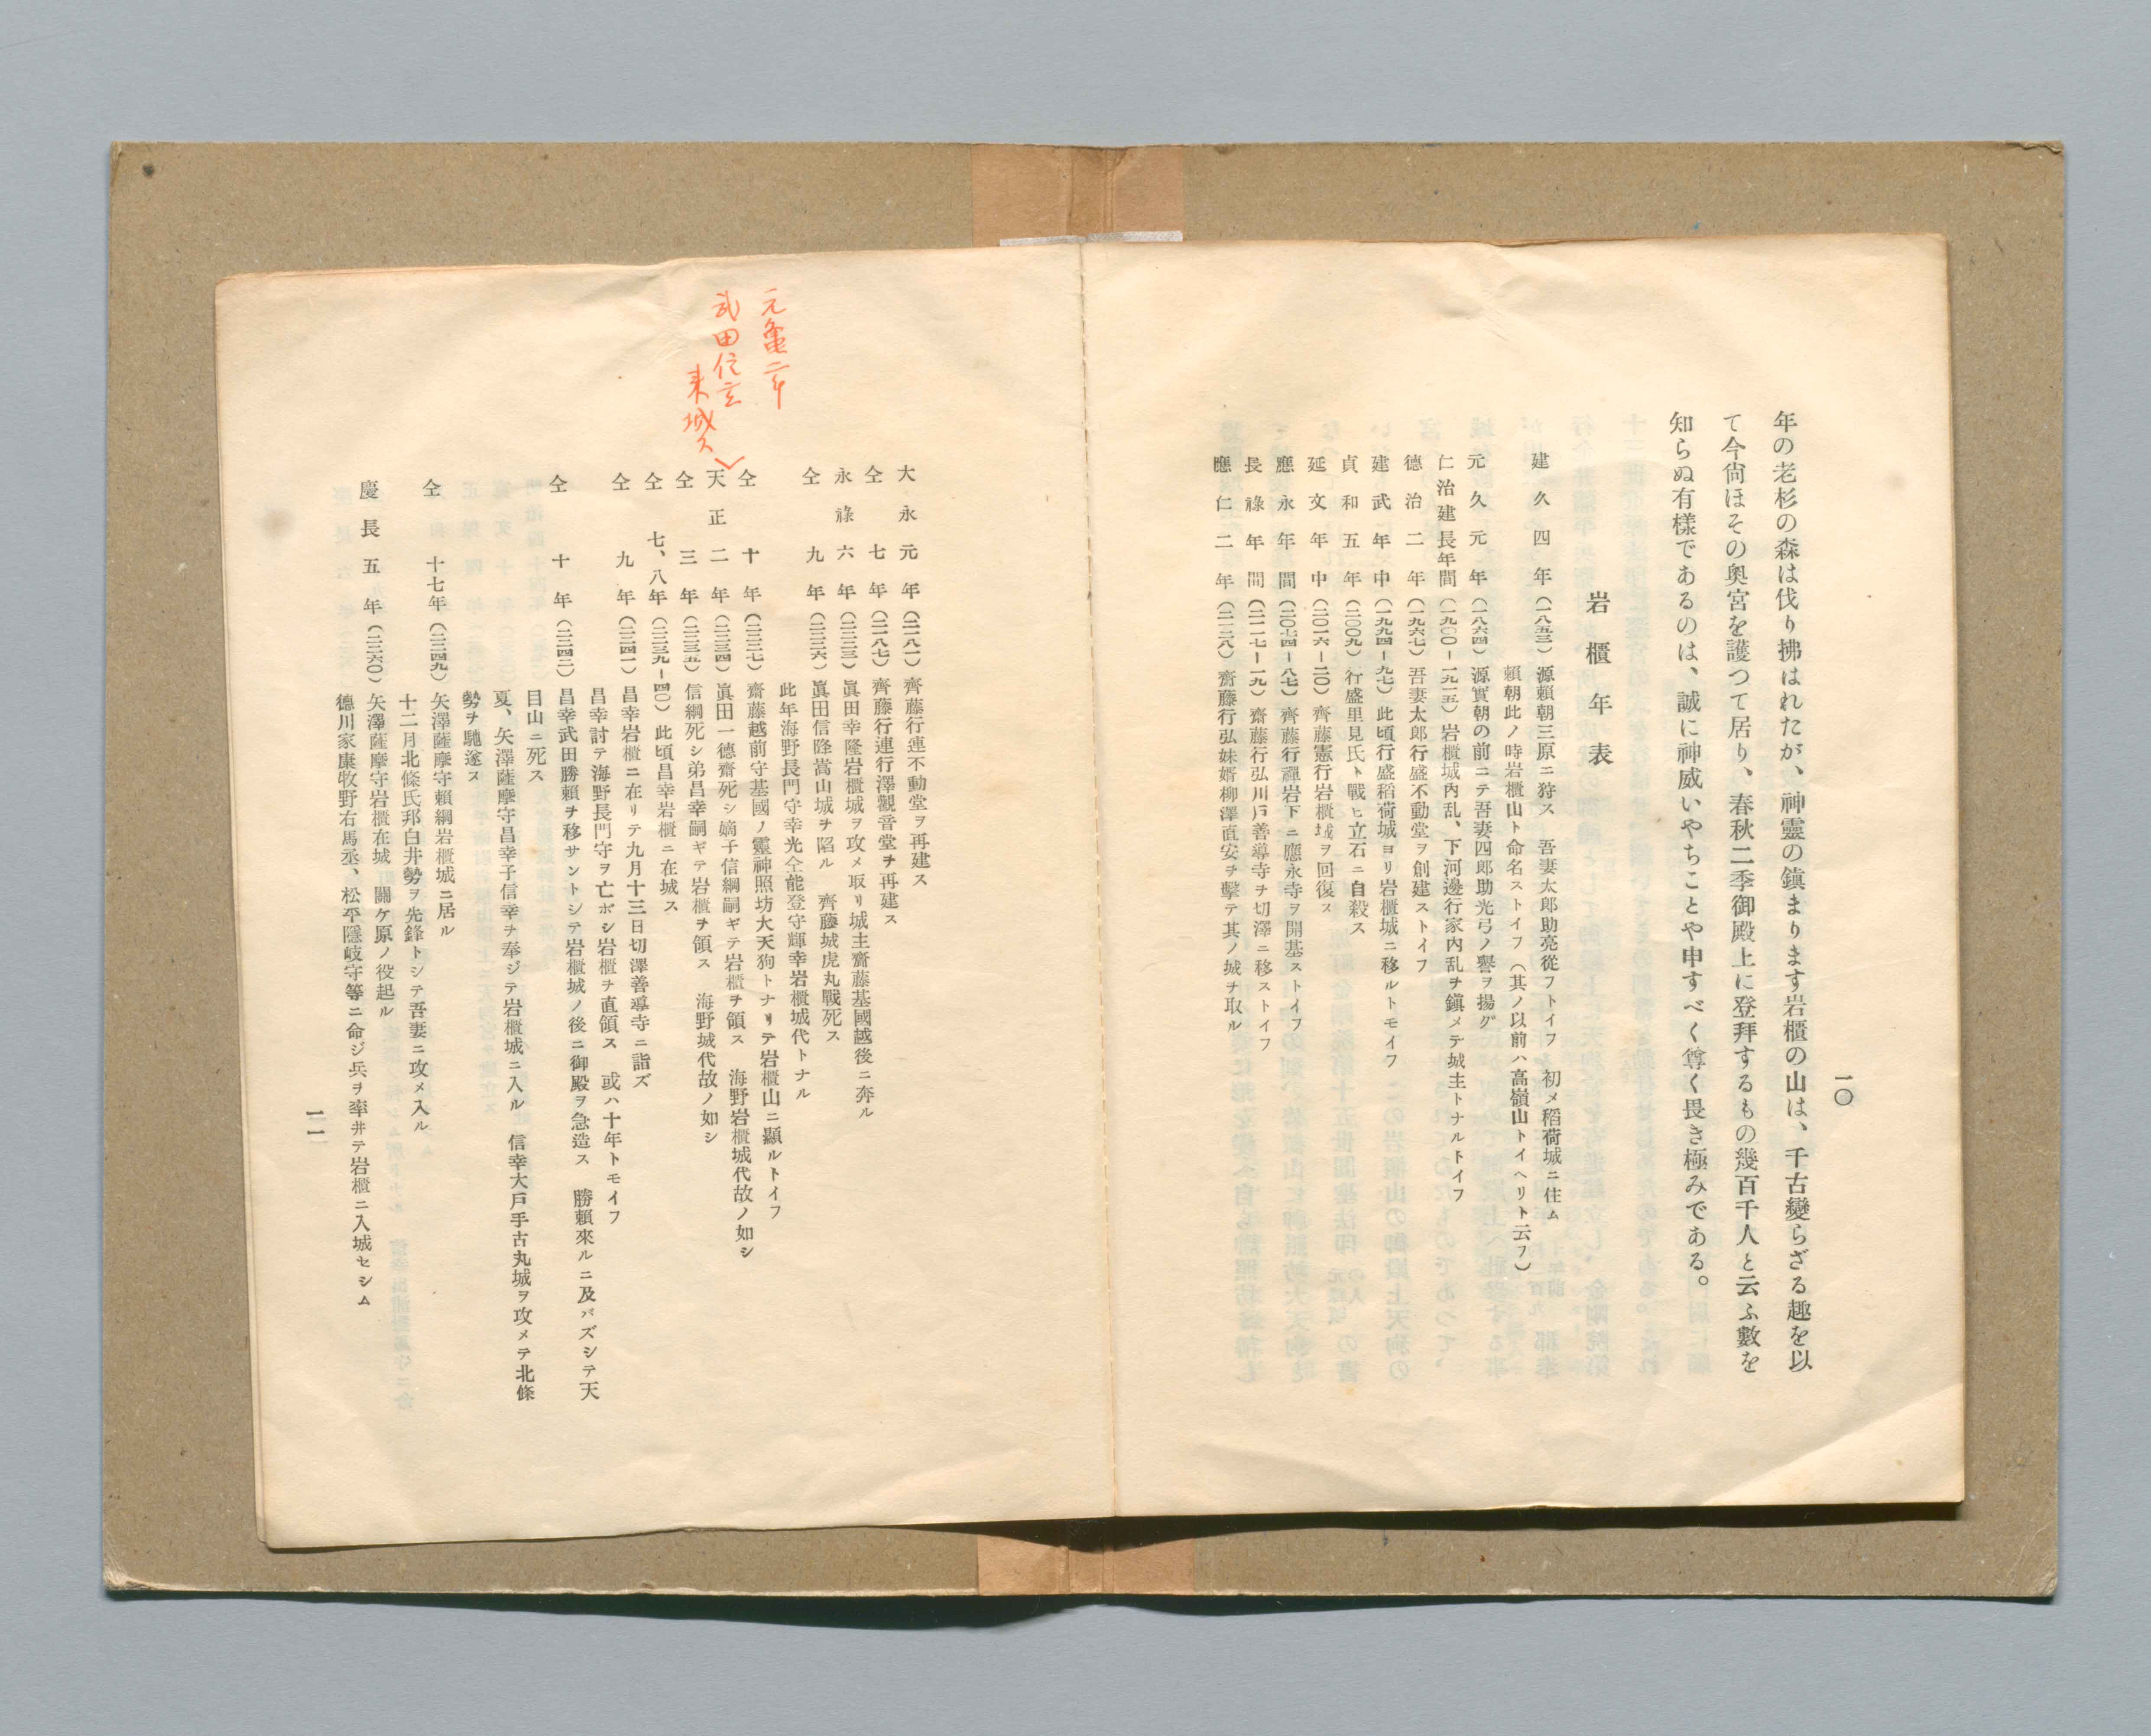 一〇
年の老杉の森は伐り拂はれたが、神靈の鎮まります岩櫃の山は、千古變らざる趣を以
て今尙ほその奥宮を護つて居り、春秋二季御殿上に登拜するもの幾百千人と云ふ數を
知らぬ有樣であるのは、誠に神威いやちことや申すべく尊く畏き極みである。
岩櫃年表
建久四年（一八五三）源賴朝三原ニ狩ス 吾妻太郎助亮從フトイフ 初メ稻荷城ニ住ム
賴朝此ノ時岩櫃山ト命名ストイフ（其ノ以前ハ高嶺山トイヘリト云フ）
元久元年（一八六四）源實朝の前ニテ吾妻四郎助光弓ノ譽ヲ揚グ
仁治建長年間（一九〇〇－一九一五）岩櫃城內乱、下河邊行家內乱ヲ鎭メテ城主トナルトイフ
德治二年（一九六七）吾妻太郎行盛不動堂ヲ創建ストイフ
建武年中（一九九四－九七）此頃行盛稻荷城ヨリ岩櫃城ニ移ルトモイフ
貞和五年（二〇〇九）行盛里見氏ト戰ヒ立石ニ自殺ス
延文年中（二〇一六－二〇）齊藤憲行岩櫃城ヲ回復ス
應永年間（二〇五四－八七）齊藤行禪岩下ニ應永寺ヲ開基ストイフ
長祿年間（二一一七－一九）齋藤行弘川戸善導寺ヲ切澤ニ移ストイフ
應仁二年（二一二八）齋藤行弘妹婿柳澤直安ヲ擊テ其ノ城ヲ取ル
大永元年（二一八一）齊藤行連不動堂ヲ再建ス
仝七年（二一八七）齊藤行連行澤觀音堂ヲ再建ス
永祿六年（二二二三）眞田幸隆岩櫃城ヲ攻メ取リ城主齋藤基國越後ニ奔ル
仝九年（二二二六）眞田信隆嵩山城ヲ陷ル 齊藤城虎丸戰死ス
此年海野長門守幸光全能登守輝幸岩櫃城代トナル
仝十年（二二二七）齋藤越前守基國ノ靈神照坊大天狗トナリテ岩櫃山ニ顯ルトイフ
元亀二年
武田信玄
来城ス
天正二年（二二三四）眞田一德齋死シ嫡子信綱嗣ギテ岩櫃ヲ領ス 海野岩櫃城代故ノ如シ
仝三年（二二三五）信綱死シ弟昌幸嗣ギテ岩櫃ヲ領ス 海野城代故ノ如シ
仝七、八年（二二三九－四〇）此頃昌幸岩櫃ニ在城ス
仝九年（二二四一）昌幸岩櫃ニ在リテ九月十三日切澤善導寺ニ詣ズ
昌幸討テ海野長門守ヲ亡ボシ岩櫃ヲ直領ス 或ハ十年トモイフ
仝十年（二二四二）昌幸武田勝賴ヲ移サントシテ岩櫃城ノ後ニ御殿ヲ急造ス 勝賴來ルニ及バズシテ天
目山ニ死ス
夏、矢澤薩摩守昌幸子信幸ヲ奉ジテ岩櫃城ニ入ル 信幸大戸手古丸城ヲ攻メテ北條
勢ヲ馳逐ス
仝十七年（二二四九）矢澤薩摩守賴綱岩櫃城ニ居ル
十二月北條氏邦白井勢ヲ先鋒トシテ吾妻ニ攻メ入ル
慶長五年（二二六〇）矢澤薩摩守岩櫃在城 關ケ原ノ役起ル
德川家康牧野右馬丞、松平隱岐守等ニ命ジ兵ヲ率井テ岩櫃ニ入城セシム
一一